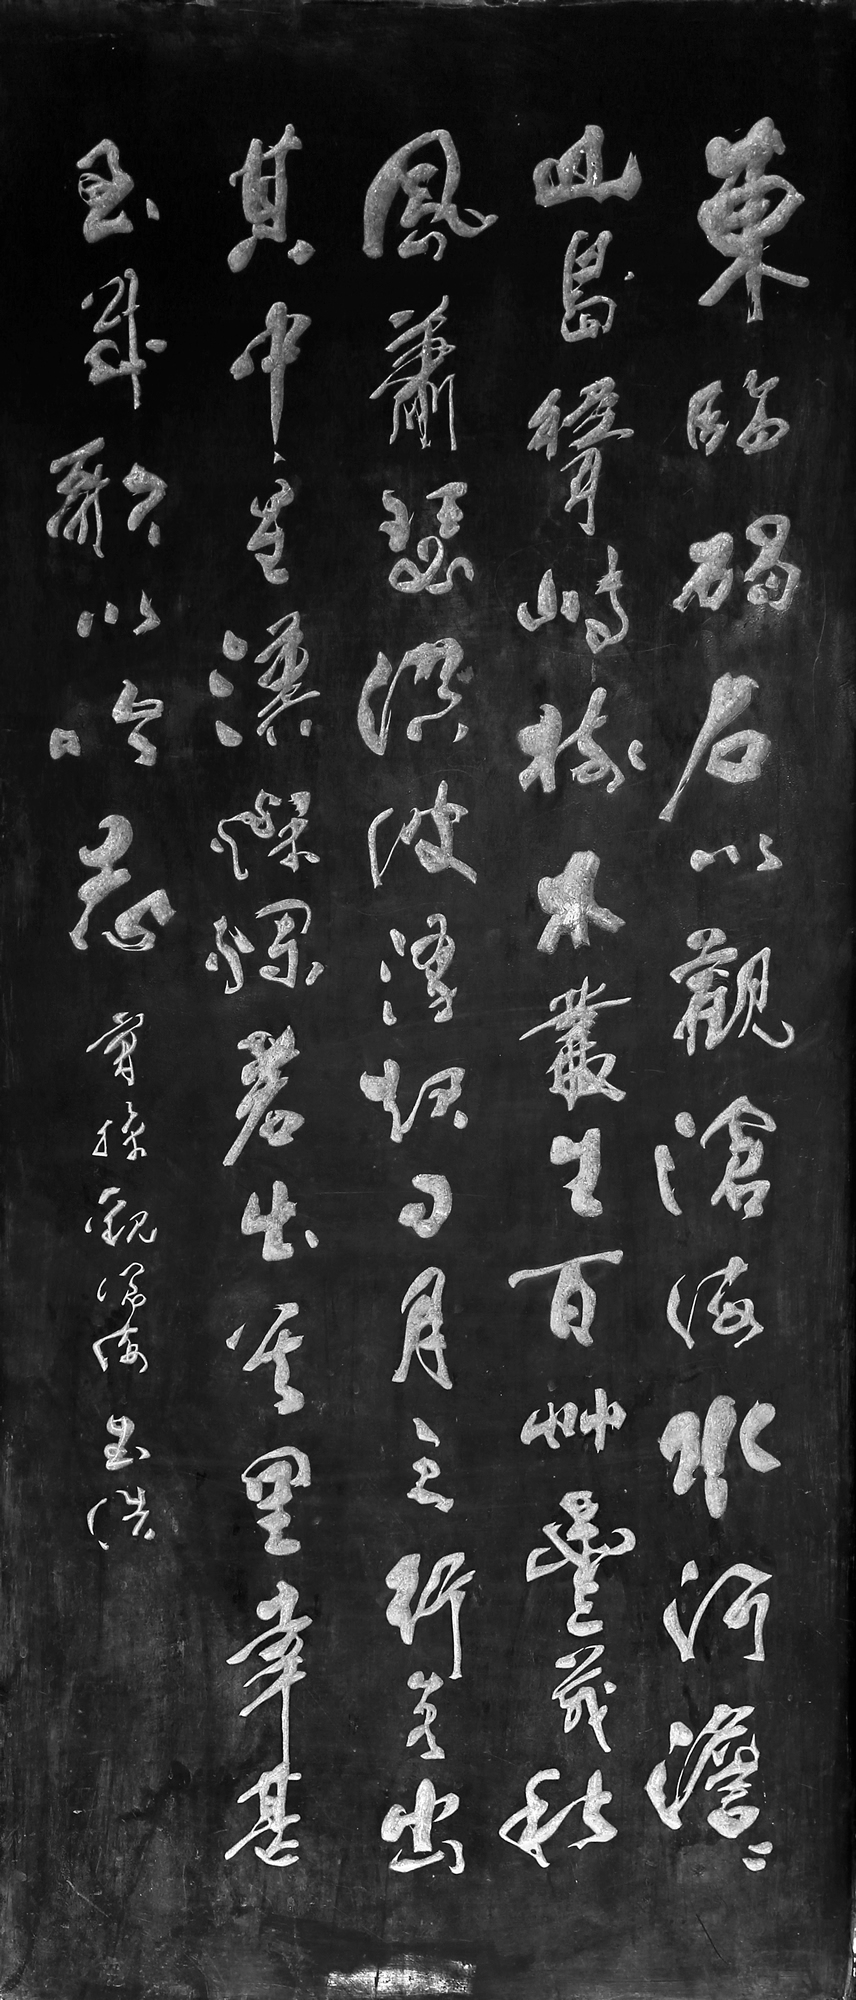 東臨碣石以觀滄海水河澹〻
山島聳峙樹木叢生百艸豐茂秋
風蕭瑟洪波湧起日月之行若出
其中星漢燦爛若出其里幸甚
至哉歌以吟志 曹操觀滄海 浩